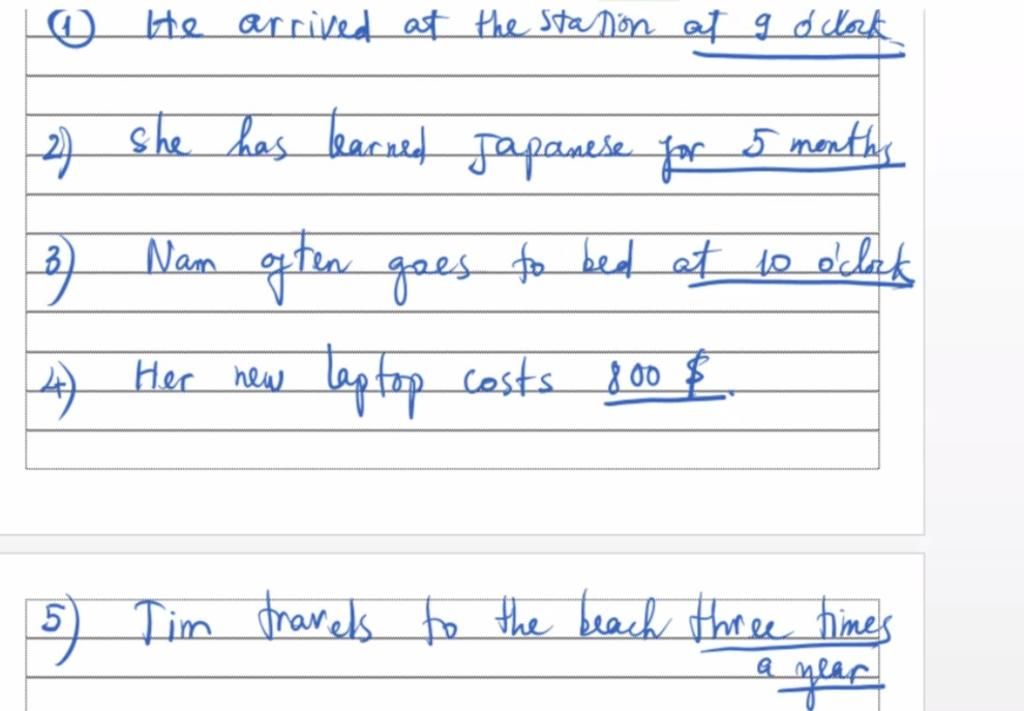 ① He arrived at the station at 9 o'clock
2) she has learned Japanese for 5 months
3) Nam often goes to bed at 10 o'clock
4) Her new laptop costs 800 $.
5) Tim travels to the beach three times
a year